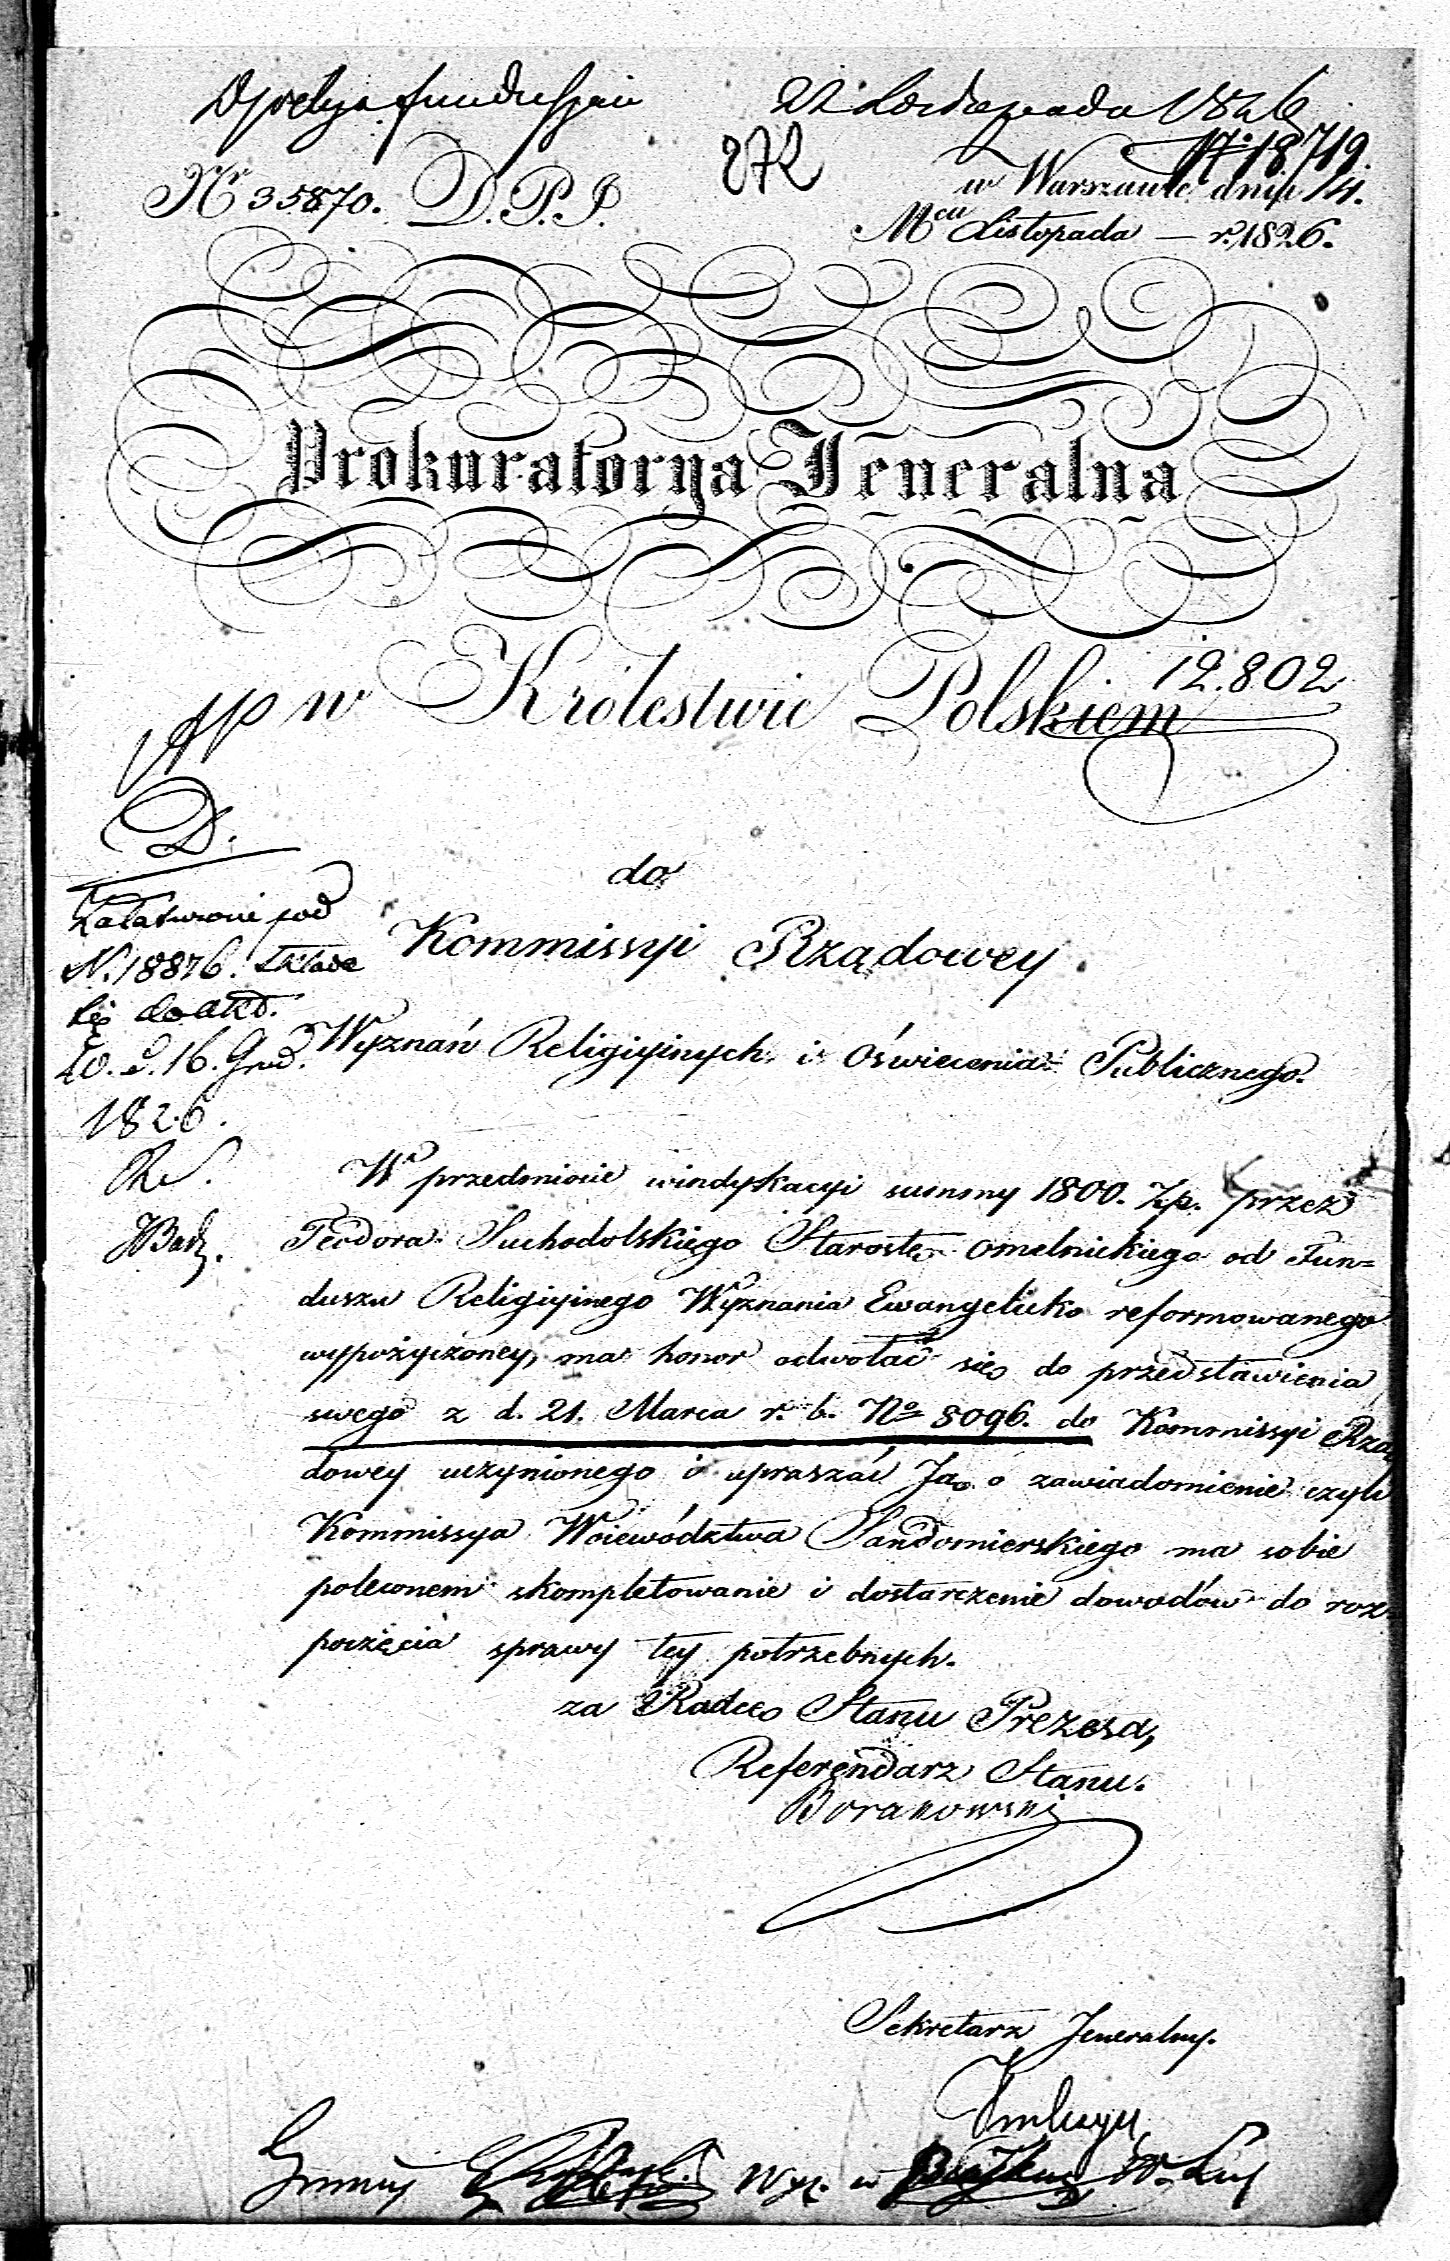 22 Listopada 1826
N: 18719.
272
Nr 35870. D.P.J.
w Warszawie dnia 14.
Mca Listopada — r. 1826.
Prokuratorya Jeneralna
w Królestwie Polskiem
12.802
D.
do
Załatwione pod
N. 18876. składa
się do akt.
d. 16. Grud.
1826.
Kommissyi Rządowey
Wyznań Religiyinych i Oświecenia Publicznego.
W przedmiocie windykacyi summy 1800. Zp. przez
Teodora Suchodolskiego Starostę Omelnickiego od Fun=
duszu Religiyinego Wyznania Ewangelicko reformowanego
wypożyczoney, ma honor odwołać się do przedstawienia
swego z d. 21. Marca r. b. No 8096. do Kommissyi Rzą
dowey uczynionego i upraszać Ją o zawiadomienie czyli
Kommissya Woiewództwa Sandomierskiego ma sobie
poleconem skompletowanie i dostarczenie dowodów do roz=
poczęcia sprawy tey potrzebnych.
za Radcę Stanu Prezesa,
Referendarz Stanu.
Sekretarz Jeneralny.